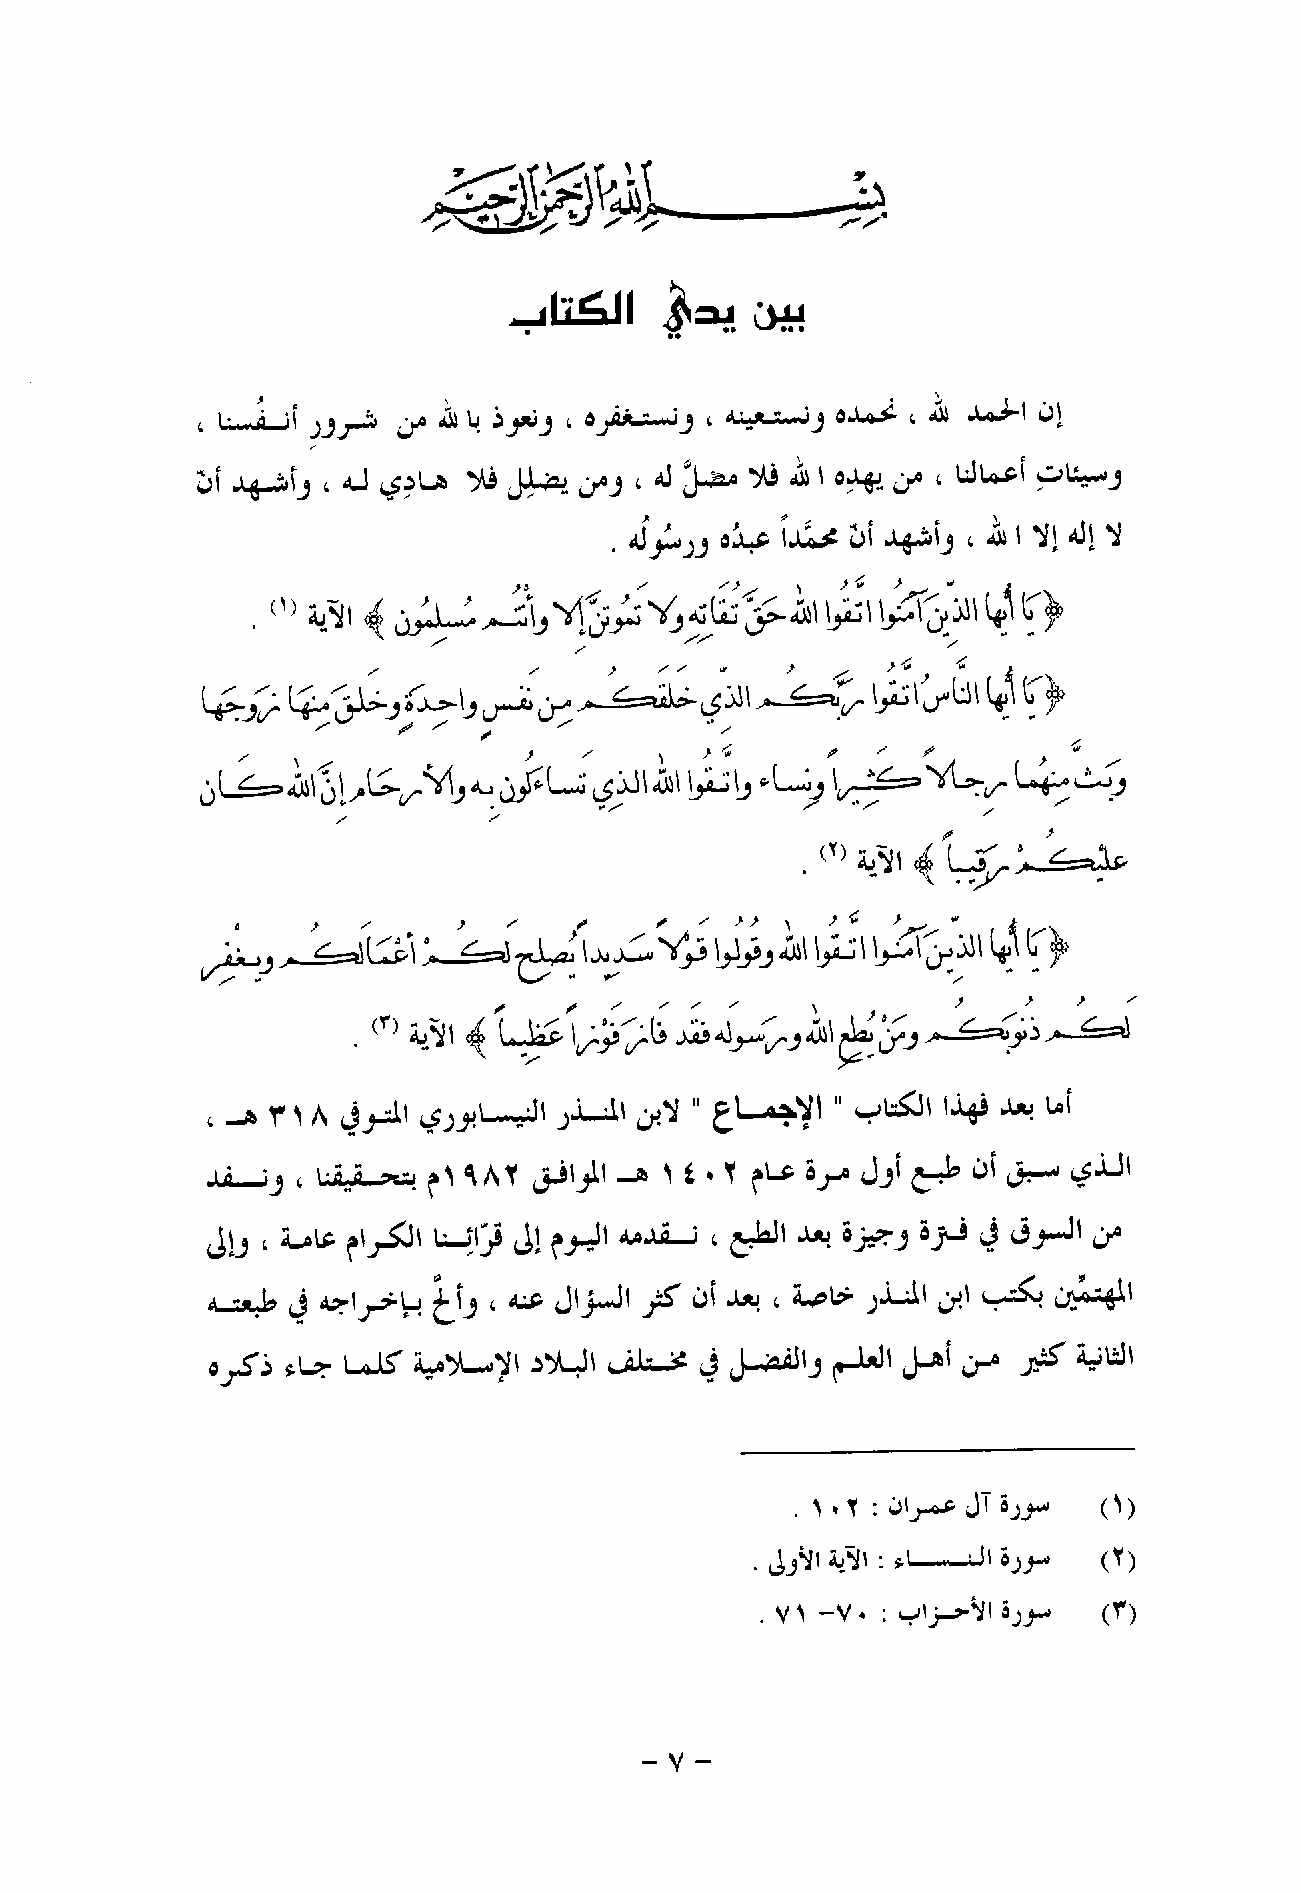 بسم الله الرحمن الرحيم
بين يدي الكتاب
إن الحمد لله ، نحمده ونستعينه ، ونستغفره ، ونعوذ بالله من شرور أنفُسنا ،
وسيئاتِ أعمالنا ، من يهدِه الله فلا مضلّ له ، ومن يضلِل فلا هادِي له ، وأشهد أنّ
لا إله إلا الله ، وأشهد أنّ محمّداً عبدُه ورسُولُه .
﴿ يَا أيُّها الذِينَ آمَنُوا اتَّقُوا اللهَ حَقَّ تُقَاتِهِ ولاَ تَمُوتُنَّ إلاَّ وأنْتُم مُسْلِمُون ﴾ الآية (١) .
﴿ يَا أيُّها النَّاسُ اتَّقُوا رَبَّكُم الذِي خَلَقَكُم مِن نَفسٍ واحِدَةٍ وخلَقَ مِنهَا زَوجَهَا
وَبَثَّ مِنهُمَا رِجالاً كَثِيراً ونِساء واتَّقُوا اللهَ الذِي تَساءَلُون بِه والأَرحَام إنَّ اللهَ كَان
عليْكُمْ رَقِيباً ﴾ الآية (٢) .
﴿ يَا أيُّها الذِينَ آمَنُوا اتَّقُوا اللهَ وقُولُوا قَولاً سَدِيداً يُصلِح لَكُمْ أعْمَالَكُم ويغْفِر
لَكُم ذنُوبَكُم ومَنْ يُطِع اللهَ ورَسُولَه فقَد فَازَ فَوْزاً عَظِيماً ﴾ الآية (٣) .
أما بعد فهذا الكتاب " الإجماع " لابن المنذر النيسابوري المتوفى ٣١٨ هـ ،
الذي سبق أن طبع أول مرة عام ١٤٠٢ هـ الموافق ١٩٨٢م بتحقيقنا ، ونفد
من السوق في فترة وجيزة بعد الطبع ، نقدمه اليوم إلى قرّائنا الكرام عامة ، وإلى
المهتمّين بكتب ابن المنذر خاصة ، بعد أن كثر السؤال عنه ، وألحّ بإخراجه في طبعته
الثانية كثير من أهل العلم والفضل في مختلف البلاد الإسلامية كلما جاء ذكره
(١) سورة آل عمران : ١٠٢ .
(٢) سورة النساء : الآية الأولى .
(٣) سورة الأحزاب : ٧٠- ٧١ .
- ٧ -